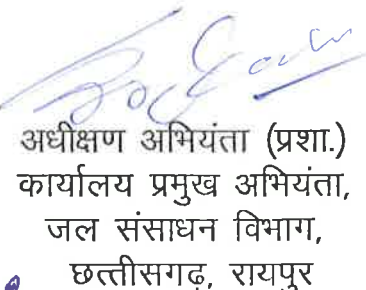 अधीक्षण अभियंता (प्रशा.)
कार्यालय प्रमुख अभियंता,
जल संसाधन विभाग,
छत्तीसगढ़, रायपुर